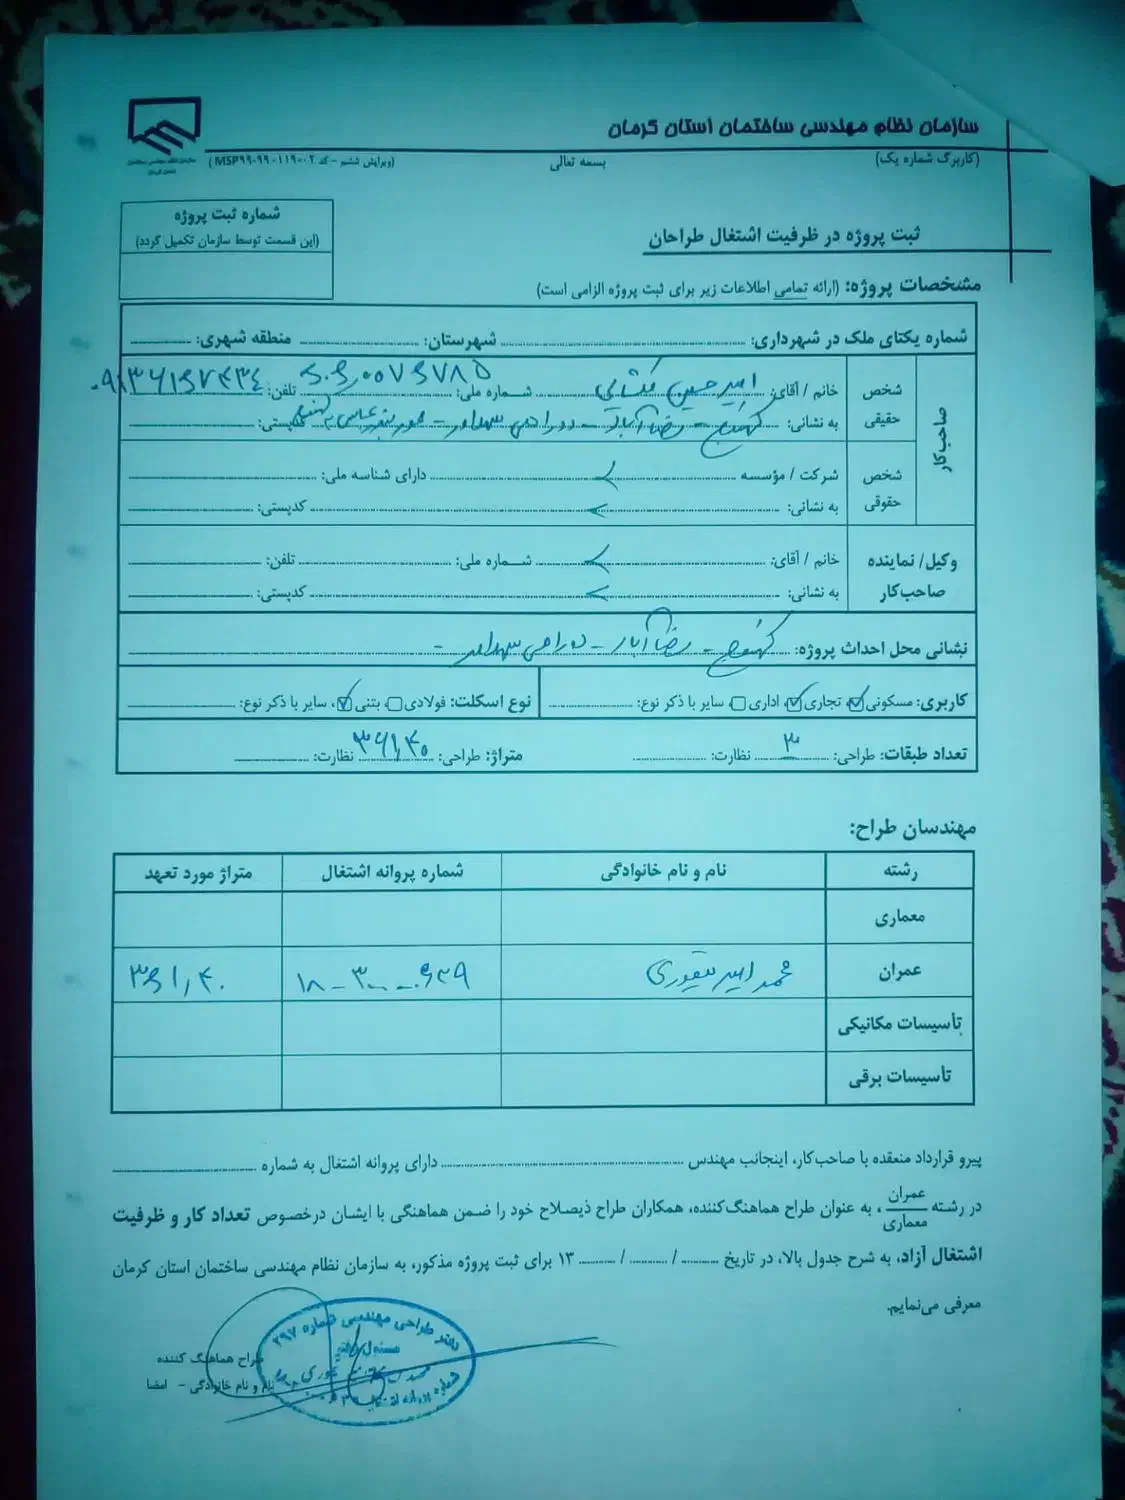 سازمان نظام مهندسی ساختمان استان کرمان
(کاربرگ شماره یک)
بسمه تعالی
(ویرایش ششم - کد MSP۹۹-۹۹۰۱۱۹۰۰۲)
شماره ثبت پروژه
(این قسمت توسط سازمان تکمیل گردد)
ثبت پروژه در ظرفیت اشتغال طراحان
مشخصات پروژه: (ارائه تمامی اطلاعات زیر برای ثبت پروژه الزامی است)
شماره یکتای ملک در شهرداری: شهرستان: منطقه شهری:
صاحب‌کار
شخص حقیقی
خانم / آقای: امیرحسین شماره ملی: تلفن:
به نشانی: کهنوج - رضاآباد - کدپستی:
شخص حقوقی
شرکت / مؤسسه دارای شناسه ملی:
به نشانی: کدپستی:
وکیل/ نماینده صاحب‌کار
خانم / آقای: شماره ملی: تلفن:
به نشانی: کدپستی:
نشانی محل احداث پروژه: کهنوج - رضاآباد -
کاربری: مسکونی، تجاری، اداری سایر با ذکر نوع: نوع اسکلت: فولادی بتنی، سایر با ذکر نوع:
تعداد طبقات: طراحی: ۳ نظارت: متراژ: طراحی: ۳۶۱,۴۰ نظارت:
مهندسان طراح:
رشته نام و نام خانوادگی شماره پروانه اشتغال متراژ مورد تعهد
معماری
عمران محمد امیر تیموری ۳۶۱,۴۰
تأسیسات مکانیکی
تأسیسات برقی
پیرو قرارداد منعقده با صاحب‌کار، اینجانب مهندس دارای پروانه اشتغال به شماره
در رشته عمران/معماری، به عنوان طراح هماهنگ‌کننده، همکاران طراح ذیصلاح خود را ضمن هماهنگی با ایشان درخصوص تعداد کار و ظرفیت
اشتغال آزاد، به شرح جدول بالا، در تاریخ / / ۱۳ برای ثبت پروژه مذکور، به سازمان نظام مهندسی ساختمان استان کرمان
معرفی می‌نمایم.
دفتر طراحی مهندسی شماره ۲۹۷
طراح هماهنگ کننده
نام و نام خانوادگی - امضا